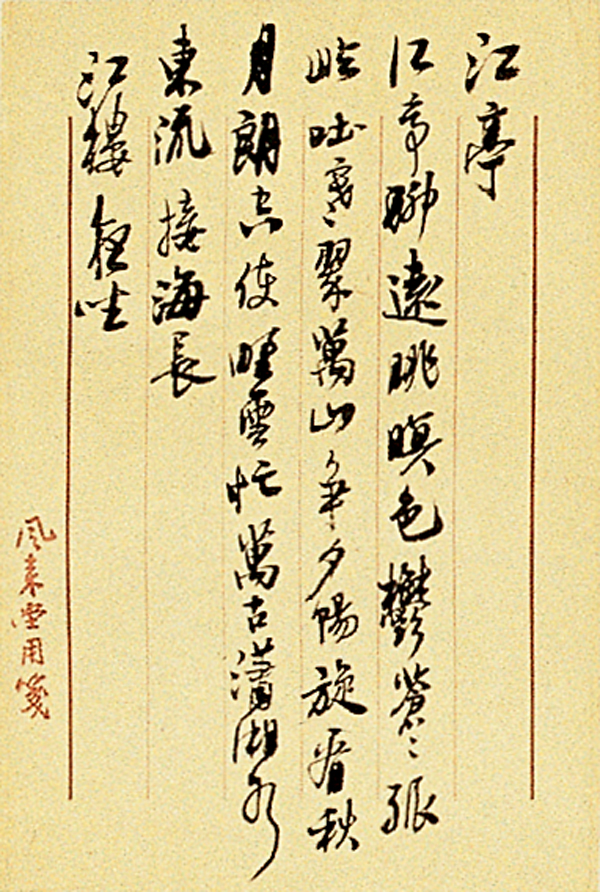 江亭
江亭聊遠眺暝色鬱蒼蒼孤
吐寒翠萬山爭夕陽旋看秋
月朗使雲忙萬古瀟湘水
東流接海長
江樓夜坐
風來堂用箋